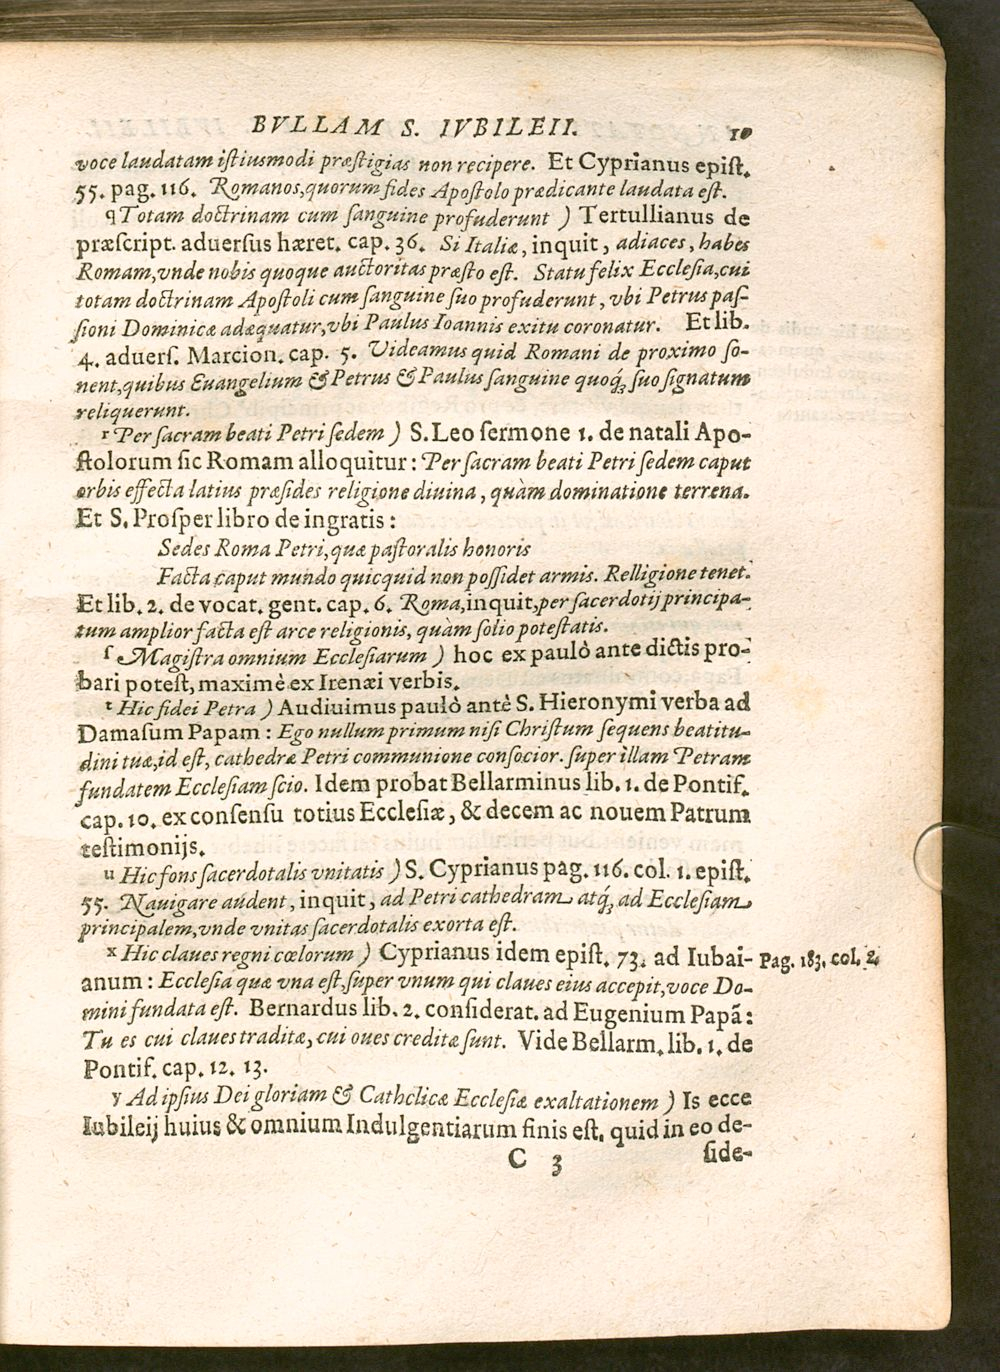 BVLLAM S. IVBILEII. 10
voce laudatam istiusmodi præstigias non recipere. Et Cyprianus epist.
55. pag. 116. Romanos, quorum fides Apostolo prædicante laudata est.
q Totam doctrinam cum sanguine profuderunt ) Tertullianus de
præscript. aduersus hæret. cap. 36. Si Italiæ, inquit, adiaces, habes
Romam, vnde nobis quoque auctoritas præsto est. Statu felix Ecclesia, cui
totam doctrinam Apostoli cum sanguine suo profuderunt, vbi Petrus pas-
sioni Dominicæ adæquatur, vbi Paulus Ioannis exitu coronatur. Et lib.
4. aduers. Marcion. cap. 5. Videamus quid Romani de proximo so-
nent, quibus Euangelium & Petrus & Paulus sanguine quoq́; suo signatum
reliquerunt.
r Per sacram beati Petri sedem ) S. Leo sermone 1. de natali Apo-
stolorum sic Romam alloquitur: Per sacram beati Petri sedem caput
orbis effecta latius præsides religione diuina, quàm dominatione terrena.
Et S. Prosper libro de ingratis:
Sedes Roma Petri, quæ pastoralis honoris
Facta caput mundo quicquid non possidet armis. Relligione tenet.
Et lib. 2. de vocat. gent. cap. 6. Roma, inquit, per sacerdotij principa-
tum amplior facta est arce religionis, quàm solio potestatis.
ſ Magistra omnium Ecclesiarum ) hoc ex paulò ante dictis pro-
bari potest, maximè ex Irenæi verbis.
t Hic fidei Petra ) Audiuimus paulò antè S. Hieronymi verba ad
Damasum Papam: Ego nullum primum nisi Christum sequens beatitu-
dini tuæ, id est, cathedræ Petri communione consocior. super illam Petram
fundatem Ecclesiam scio. Idem probat Bellarminus lib. 1. de Pontif.
cap. 10. ex consensu totius Ecclesiæ, & decem ac nouem Patrum
testimonijs.
u Hic fons sacerdotalis vnitatis ) S. Cyprianus pag. 116. col. 1. epist.
55. Nauigare audent, inquit, ad Petri cathedram atq́; ad Ecclesiam
principalem, vnde vnitas sacerdotalis exorta est.
x Hic claues regni cœlorum ) Cyprianus idem epist. 73. ad Iubai-
Pag. 183. col. 2.
anum: Ecclesia quæ vna est, super vnum qui claues eius accepit, voce Do-
mini fundata est. Bernardus lib. 2. considerat. ad Eugenium Papã:
Tu es cui claues traditæ, cui oues creditæ sunt. Vide Bellarm. lib. 1. de
Pontif. cap. 12. 13.
y Ad ipsius Dei gloriam & Cathclicæ Ecclesiæ exaltationem ) Is ecce
Iubileij huius & omnium Indulgentiarum finis est. quid in eo de-
C 3 side-